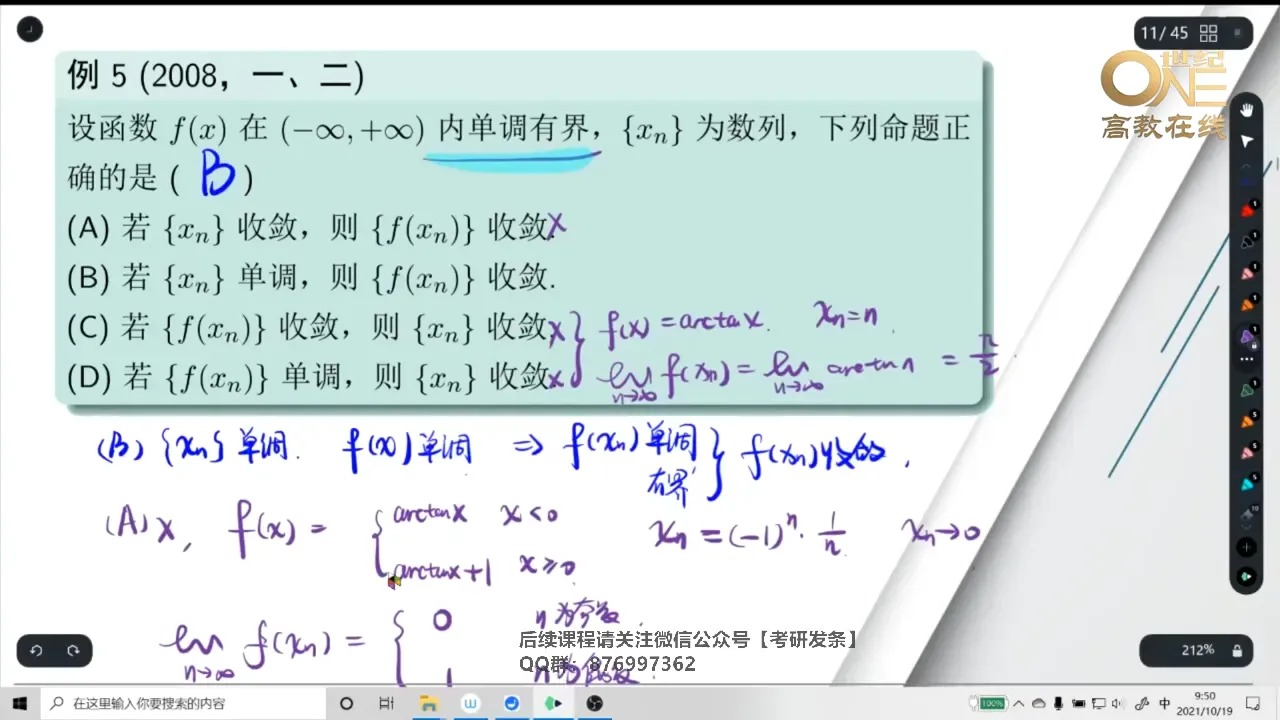 11/45
世纪
ONE
高教在线
例 5 (2008，一、二)
设函数 f(x) 在 (−∞, +∞) 内单调有界，{xₙ} 为数列，下列命题正
确的是 ( B )
(A) 若 {xₙ} 收敛，则 {f(xₙ)} 收敛. ×
(B) 若 {xₙ} 单调，则 {f(xₙ)} 收敛.
(C) 若 {f(xₙ)} 收敛，则 {xₙ} 收敛 × f(x) = arctanx. xₙ=n.
(D) 若 {f(xₙ)} 单调，则 {xₙ} 收敛 × lim n→∞ f(xₙ) = lim n→∞ arctan n = π/2
(B) {xₙ} 单调. f(x) 单调 ⇒ f(xₙ) 单调 有界 } f(xₙ) 收敛.
(A) ×, f(x) = { arctanx x<0
arctanx+1 x≥0
xₙ = (−1)ⁿ · 1/n xₙ→0
lim n→∞ f(xₙ) = { 0 n为奇数.
1 n为偶数.
后续课程请关注微信公众号【考研发条】
QQ群：876997362
212%
在这里输入你要搜索的内容
100%
中
9:50
2021/10/19